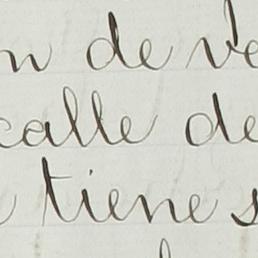 n de ve
calle de
tiene s